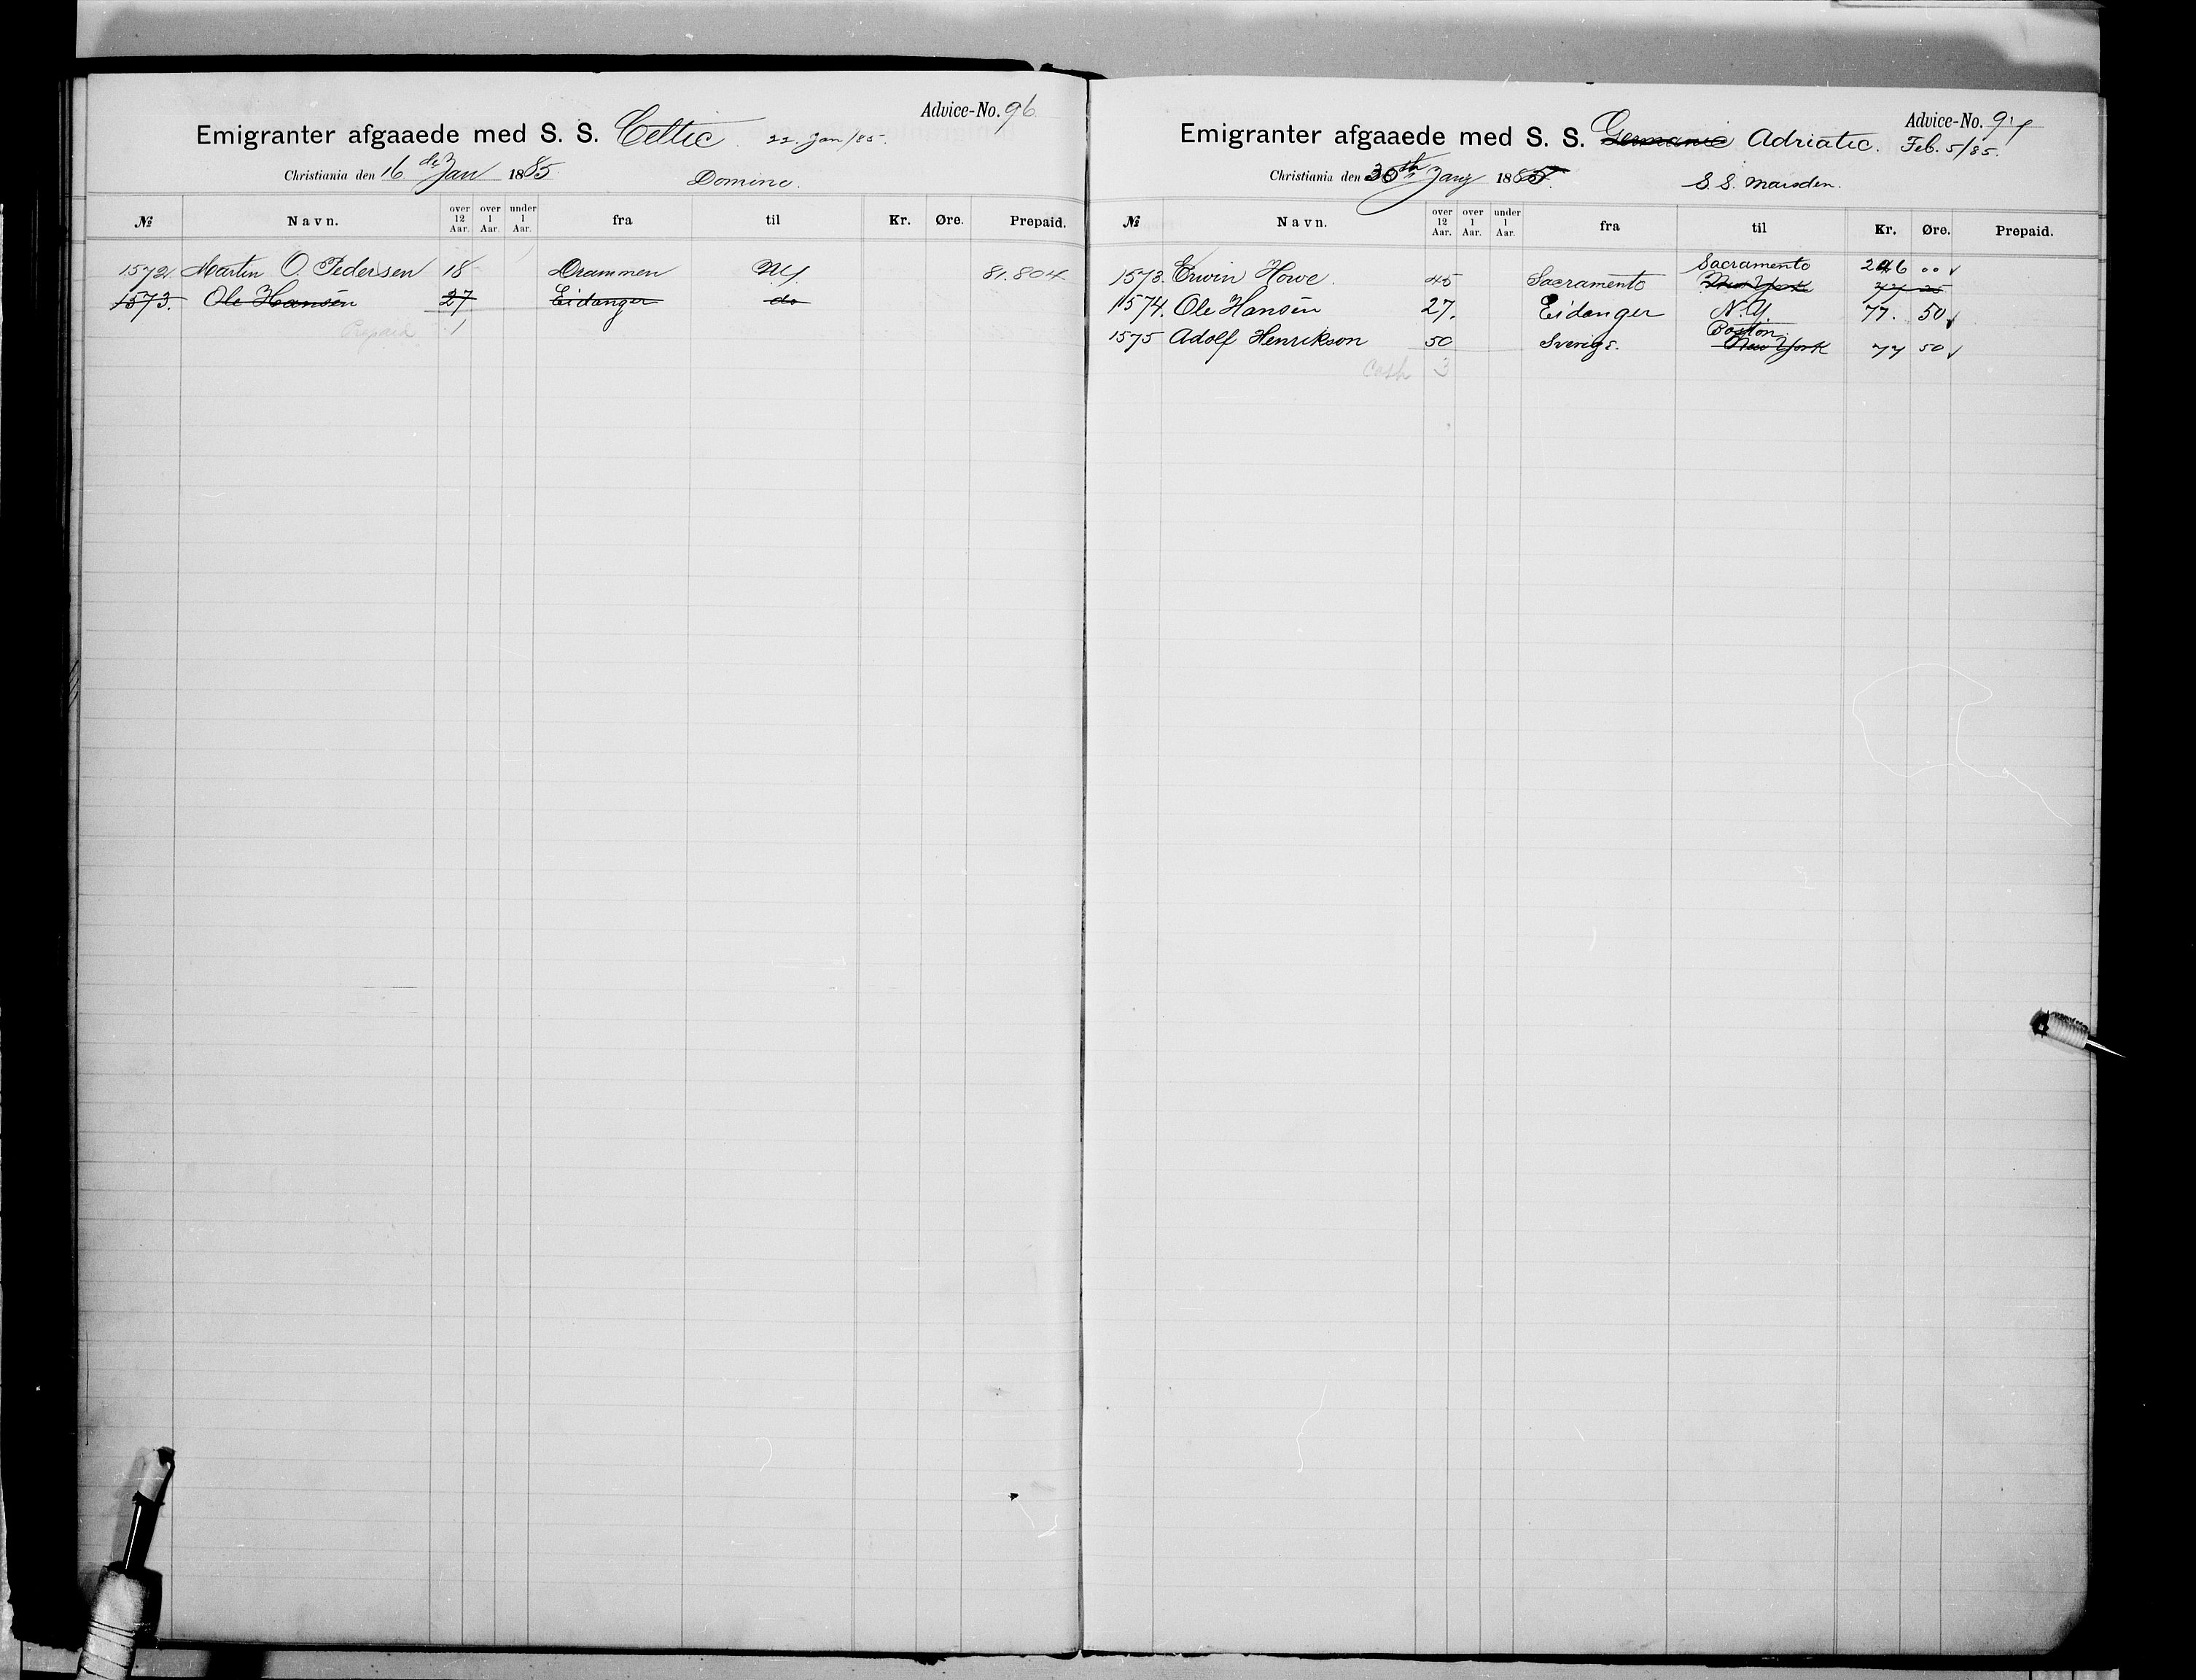 Advice-No. 96
Emigranter afgaaede med S. S. Celtic. 22. Jan/85.
Christiania den 16 de Jan 1885
Domino.
№ Navn. over 12 Aar. over 1 Aar. under 1 Aar. fra til Kr. Øre. Prepaid.
1572. Martin O. Pedersen 18 Drammen N.Y. 81.804
1573. Ole Hansen 27 Eidanger do
Prepaid 1
Advice-No. 97
Emigranter afgaaede med S. S. Germanic Adriatic. Feb. 5/85.
Christiania den 30th Jany 1885.
S. S. Marsden.
№ Navn. over 12 Aar. over 1 Aar. under 1 Aar. fra til Kr. Øre. Prepaid.
Sacramento 246 00
1573. Erwin Howe. 45 Sacramento New York 77
1574. Ole Hansen 27. Eidanger N.Y. 77. 50
Boston
1575 Adolf Henrikson 50 Sverige. New York 77 50
Cash 3